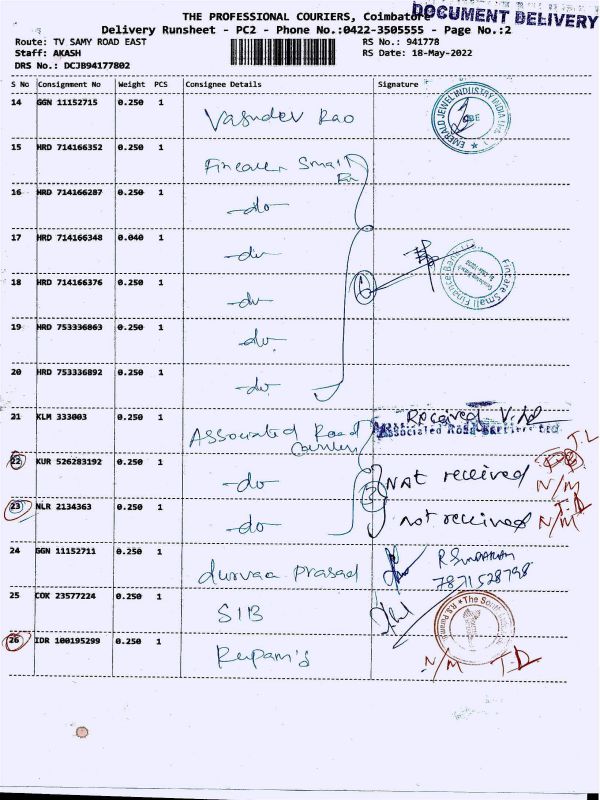 THE PROFESSIONAL COURIERS, Coimbatore
DOCUMENT DELIVERY
Delivery Runsheet - PC2 - Phone No.:0422-3505555 - Page No.:2
Route: TV SAMY ROAD EAST
RS No.: 941778
Staff: AKASH
RS Date: 18-May-2022
DRS No.: DCJB94177802
S No Consignment No Weight PCS Consignee Details Signature
14 GGN 11152715 0.250 1 Vasudev Rao
EMERALD JEWEL INDUSTRY INDIA
15 HRD 714166352 0.250 1 Fincare Small
16 HRD 714166287 0.250 1 -do-
17 HRD 714166348 0.040 1 -do-
Fincare Small Finance Bank
18 HRD 714166376 0.250 1 -do-
6
19 HRD 753336863 0.250 1 -do-
20 HRD 753336892 0.250 1 -do-
21 KLM 333003 0.250 1 Associated Road Carriers
Received
Associated Road Carriers Ltd.
22 KUR 526283192 0.250 1 -do- Not received N/M T.L
23 NLR 2134363 0.250 1 -do- not received N/M T.D
24 GGN 11152711 0.250 1 Durvaa Prasad
R Sundaram
7871528798
25 COK 23577224 0.250 1 SIB
The South
26 IDR 100195299 0.250 1 Rupam's N/M T.D